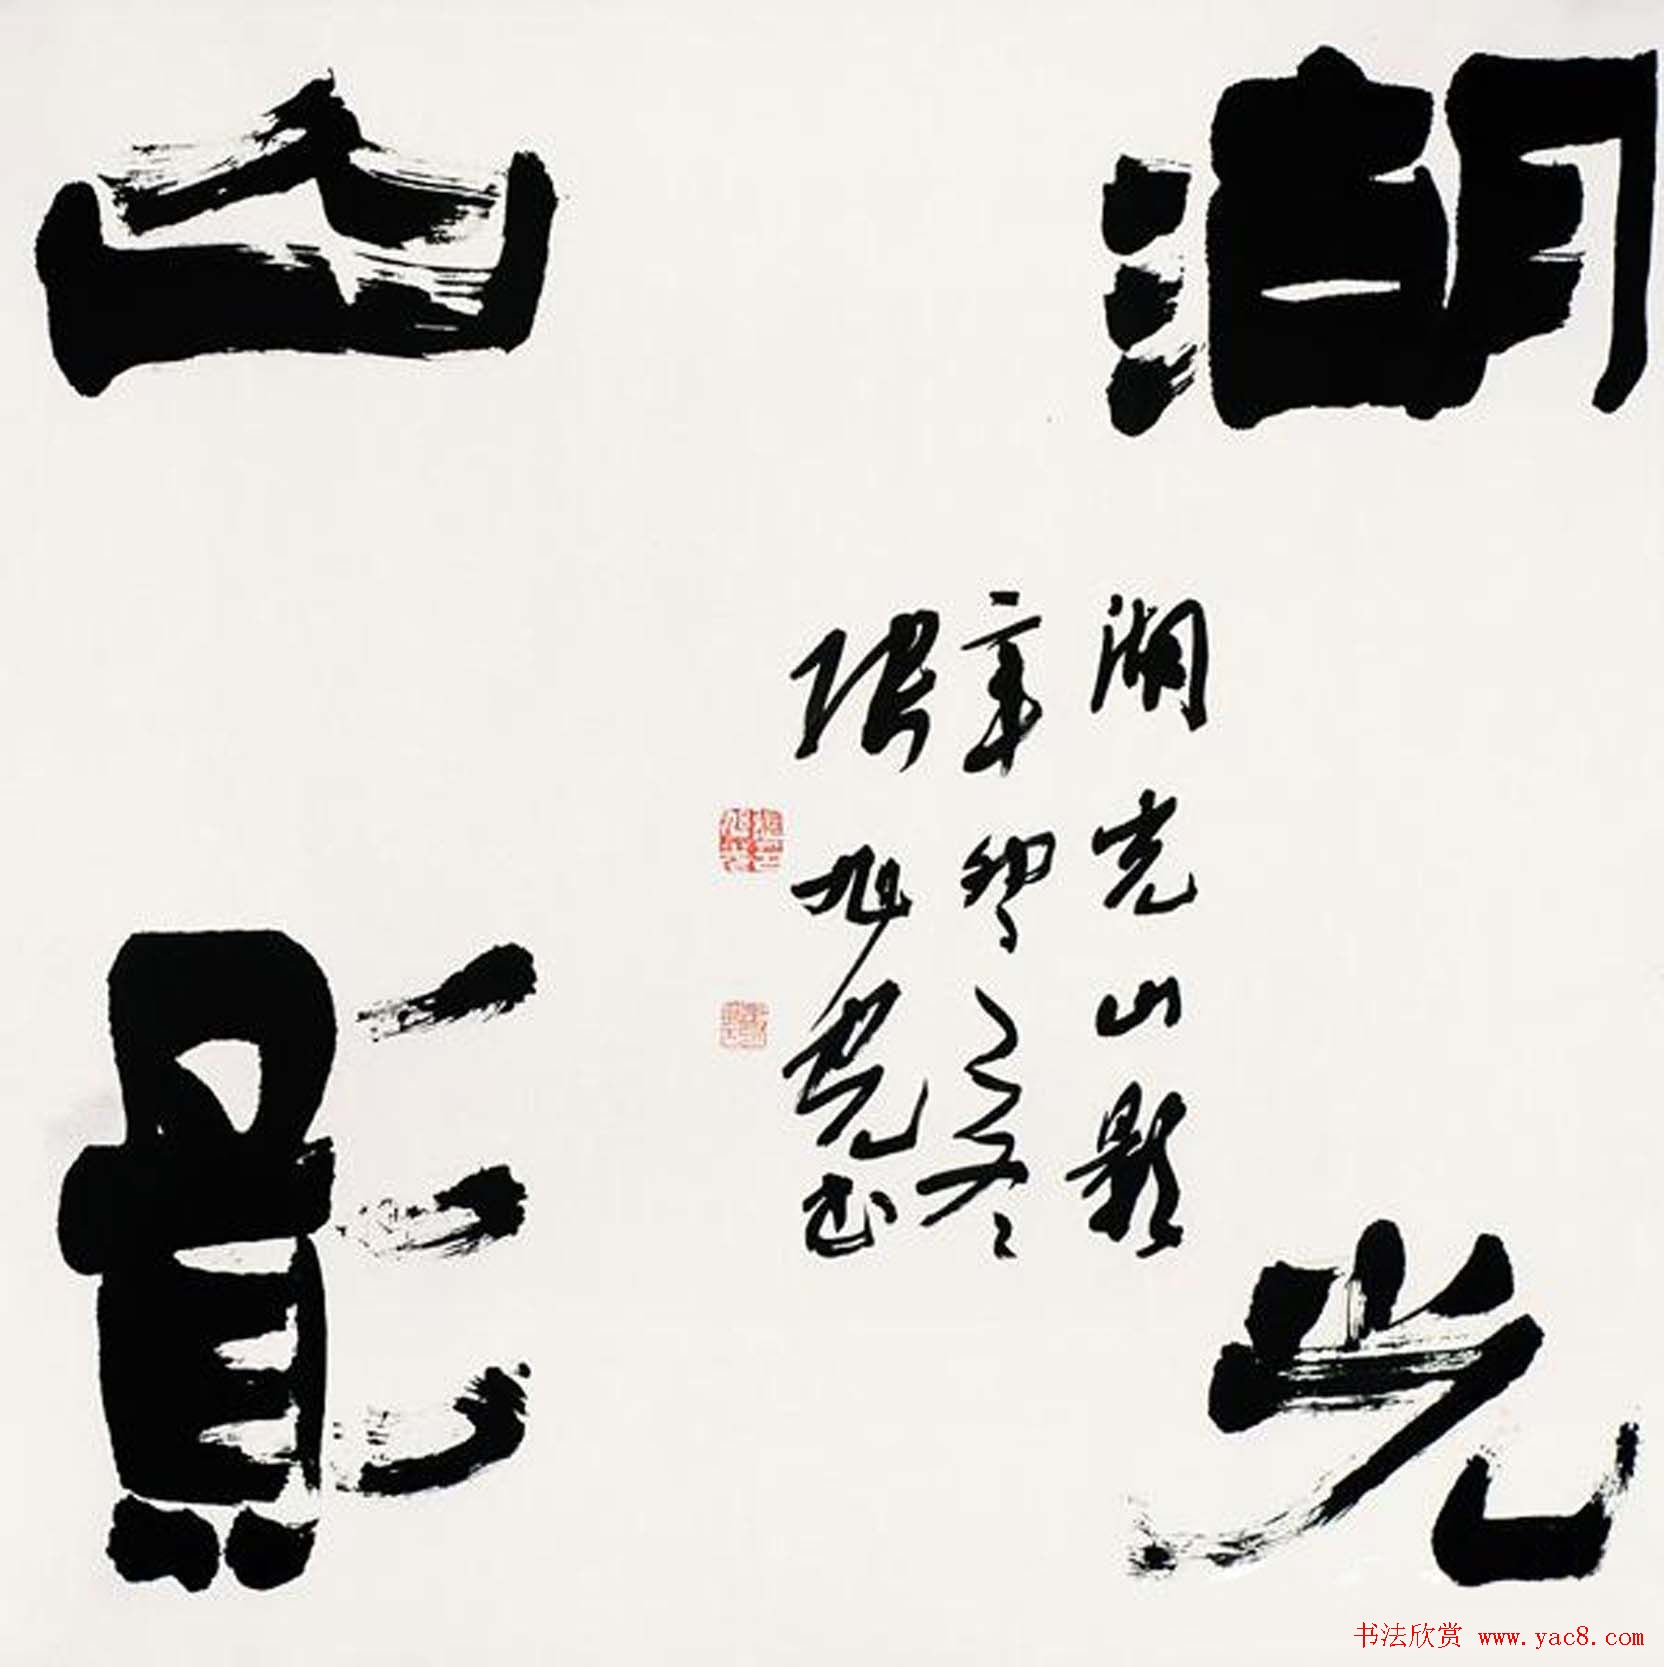 湖光
山影
湖光山影
辛卯之冬
張旭光书
书法欣赏 www.yac8.com